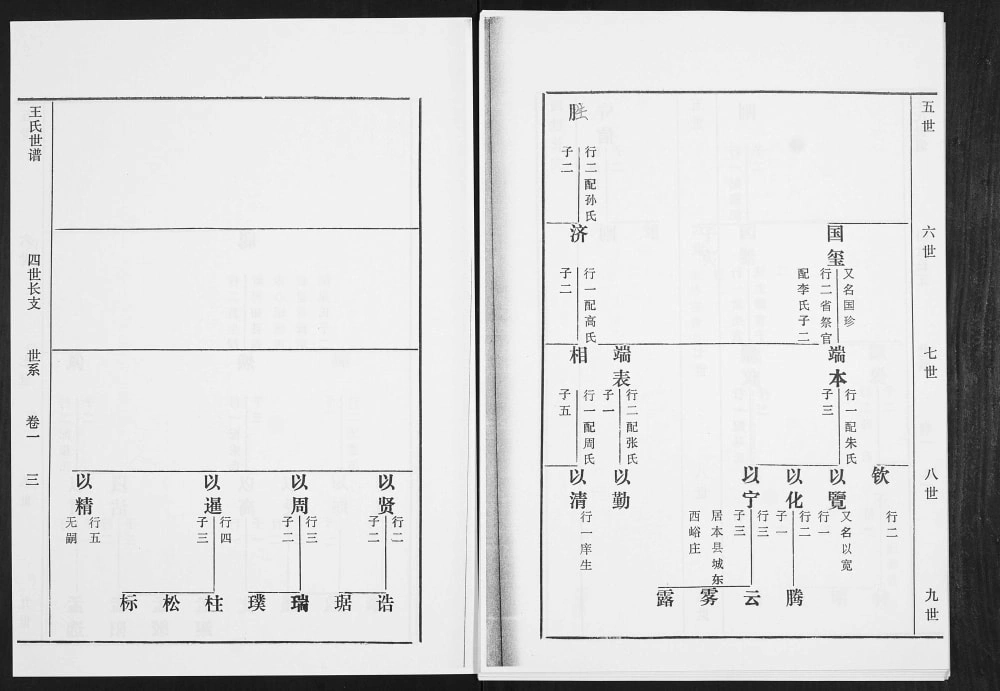 五世
六世
七世
八世
九世
国玺
又名国珍
行二省祭官
配李氏子二
端本
行一配朱氏
子三
钦
行二
以覽
又名以宽
行一
以化
行二
子一
以宁
行三
子三
居本县城东
西峪庄
腾
云
雾
露
胜
行二配孙氏
子二
济
行一配高氏
子二
端表
行二配张氏
子一
相
行一配周氏
子五
以勤
以清
行一庠生
以贤
行二
子二
以周
行三
子二
以暹
行四
子三
以精
行五
无嗣
诰
琚
瑞
璞
柱
松
标
王氏世谱
四世长支
世系
卷一
三